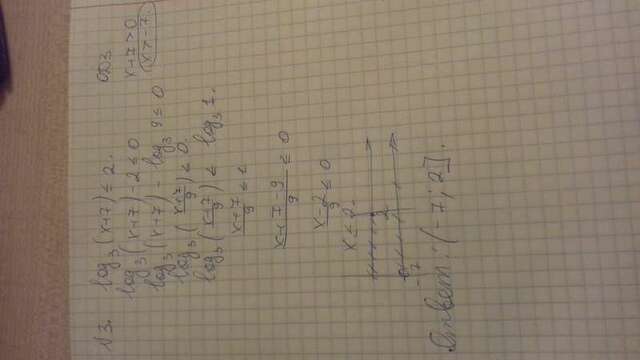 √3. log₃(x+7) ≤ 2. ОДЗ
log₃(x+7) - 2 ≤ 0 x+7>0
log₃(x+7) - log₃ 9 ≤ 0 x>-7.
log₃((x+7)/9) ≤ 0.
log₃((x+7)/9) ≤ log₃ 1.
(x+7)/9 ≤ 1
(x+7-9)/9 ≤ 0
(x-2)/9 ≤ 0
x ≤ 2.
2
-7
Ответ: (-7; 2].